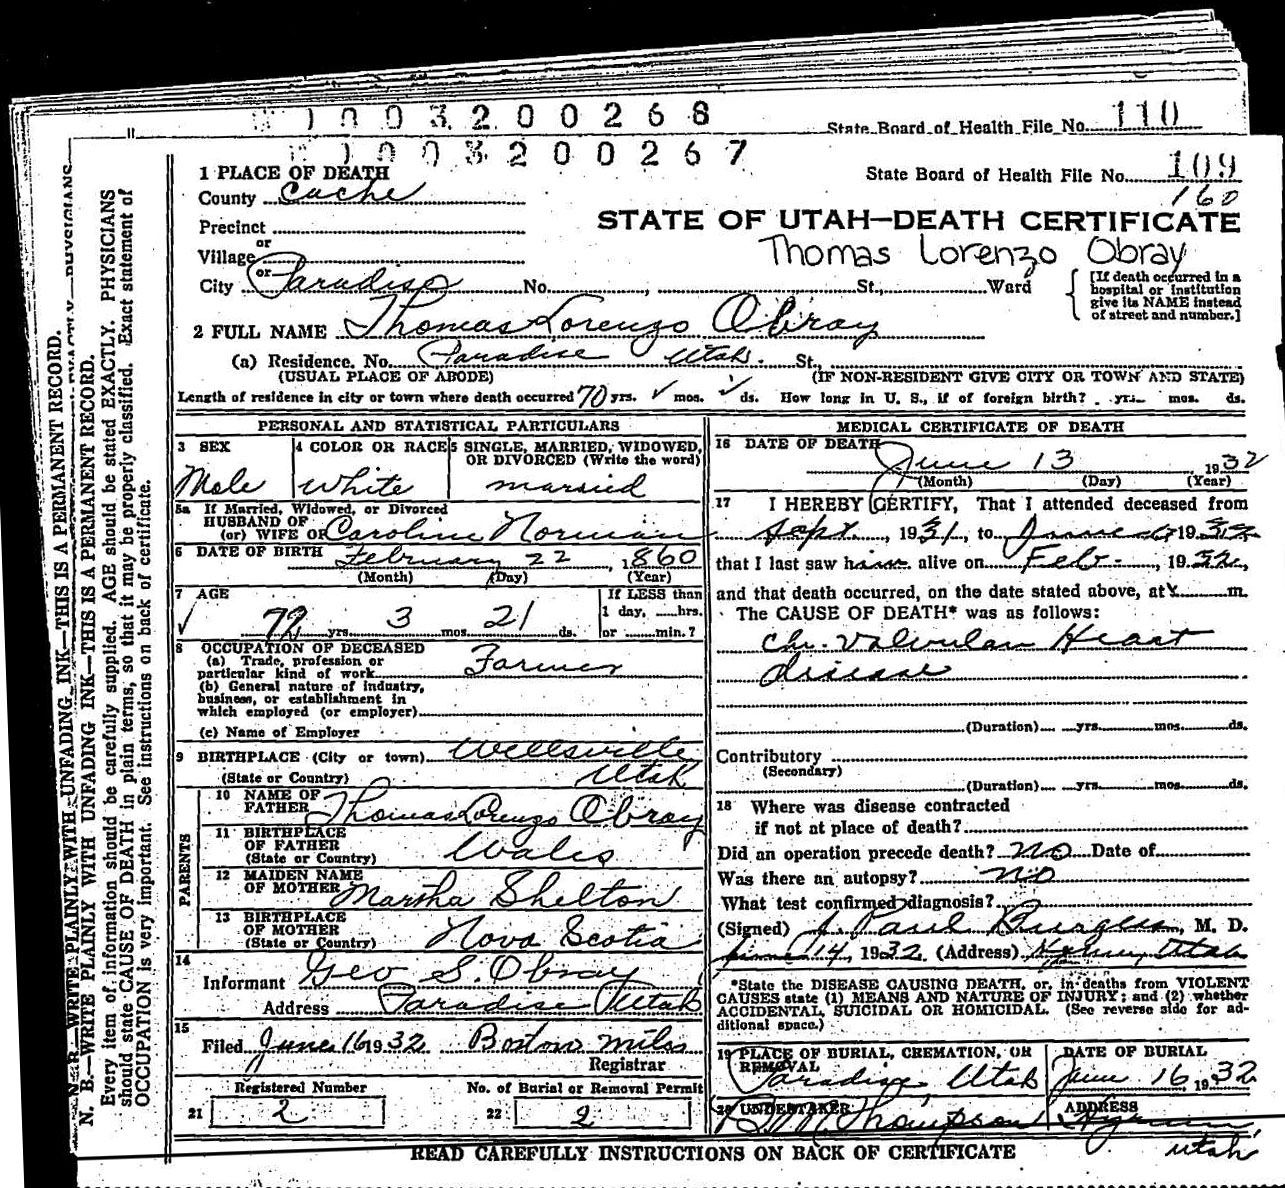 1003200268
State Board of Health File No. 110
1003200267
1 PLACE OF DEATH
State Board of Health File No. 109
County Cache
160
STATE OF UTAH—DEATH CERTIFICATE
Precinct
or
Village
Thomas Lorenzo Obray
or
City Paradise No. , St., Ward
[If death occurred in a hospital or institution give its NAME instead of street and number.]
2 FULL NAME Thomas Lorenzo Obray
(a) Residence. No. Paradise Utah. St.,
(USUAL PLACE OF ABODE) (IF NON-RESIDENT GIVE CITY OR TOWN AND STATE)
Length of residence in city or town where death occurred 70 yrs. ✓ mos. ✓ ds. How long in U. S., if of foreign birth? yrs. mos. ds.
PERSONAL AND STATISTICAL PARTICULARS
3 SEX
Male
4 COLOR OR RACE
White
5 SINGLE, MARRIED, WIDOWED,
OR DIVORCED (Write the word)
married
5a If Married, Widowed, or Divorced
HUSBAND OF
(or) WIFE OF Caroline Norman
6 DATE OF BIRTH February 22, 1860
(Month) (Day) (Year)
7 AGE
If LESS than
1 day, hrs.
or min.?
✓ 72 yrs. 3 mos. 21 ds.
8 OCCUPATION OF DECEASED
(a) Trade, profession or
particular kind of work Farmer
(b) General nature of industry,
business, or establishment in
which employed (or employer)
(c) Name of Employer
9 BIRTHPLACE (City or town) Wellsville
(State or Country) Utah
PARENTS
10 NAME OF
FATHER Thomas Lorenzo Obray
11 BIRTHPLACE
OF FATHER
(State or Country) Wales
12 MAIDEN NAME
OF MOTHER Martha Shelton
13 BIRTHPLACE
OF MOTHER
(State or Country) Nova Scotia
14
Informant Geo S. Obray
Address Paradise Utah
15
Filed June 16 1932 Boston Miles
Registrar
Registered Number
21 2
No. of Burial or Removal Permit
22 2
MEDICAL CERTIFICATE OF DEATH
16 DATE OF DEATH
June 13, 1932
(Month) (Day) (Year)
17 I HEREBY CERTIFY, That I attended deceased from
Sept., 1931, to June 6 1932
that I last saw him alive on Feb., 1932,
and that death occurred, on the date stated above, at m.
The CAUSE OF DEATH* was as follows:
Chr. Valvular Heart
disease
(Duration) yrs. mos. ds.
Contributory
(Secondary)
(Duration) yrs. mos. ds.
18 Where was disease contracted
if not at place of death?
Did an operation precede death? no Date of
Was there an autopsy? no
What test confirmed diagnosis?
(Signed) J. Paul Burgess, M. D.
June 14, 1932 (Address) Hyrum, Utah
*State the DISEASE CAUSING DEATH, or, in deaths from VIOLENT
CAUSES state (1) MEANS AND NATURE OF INJURY; and (2) whether
ACCIDENTAL, SUICIDAL OR HOMICIDAL. (See reverse side for ad-
ditional space.)
19 PLACE OF BURIAL, CREMATION, OR
REMOVAL
Paradise, Utah
DATE OF BURIAL
June 16, 1932
20 UNDERTAKER
Thompson
ADDRESS
Hyrum,
Utah
READ CAREFULLY INSTRUCTIONS ON BACK OF CERTIFICATE
N. B.—WRITE PLAINLY WITH UNFADING INK—THIS IS A PERMANENT RECORD.
N. B.—WRITE PLAINLY WITH UNFADING INK—THIS IS A PERMANENT RECORD.
Every item of information should be carefully supplied. AGE should be stated EXACTLY. PHYSICIANS
should state CAUSE OF DEATH in plain terms, so that it may be properly classified. Exact statement of
OCCUPATION is very important. See instructions on back of certificate.